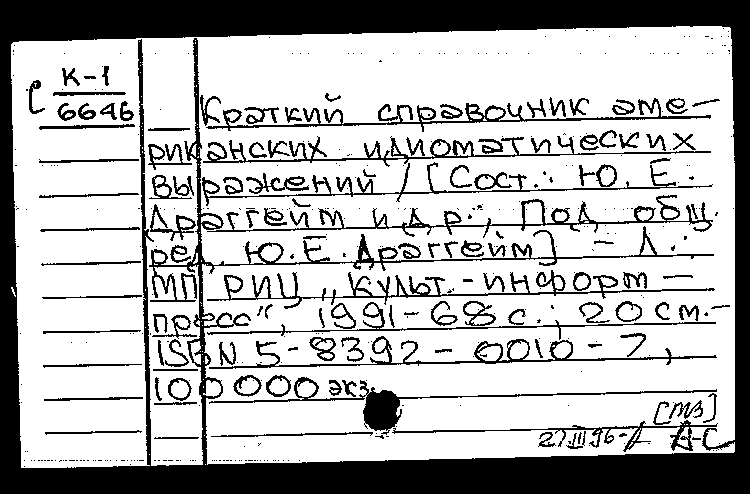 С К-1
6646
Краткий справочник аме-
риканских идиоматических
выражений / [Сост.: Ю. Е.
Драггейм и др.; Под общ.
ред. Ю. Е. Драггейм] - Л.:
МП РИЦ „Культ.-информ-
пресс", 1991-68 с.; 20 см.-
ISBN 5-8392-0010-7,
100000 экз.
[МЗ]
27 III 96-А А-С